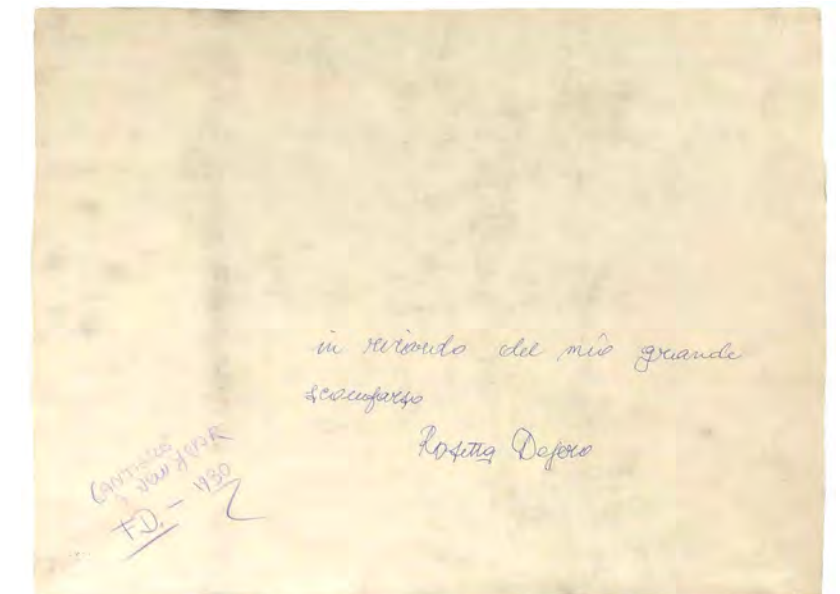 in ricordo del mio grande
scomparso
Rosetta Depero
NEW YORK
F.D. - 1930